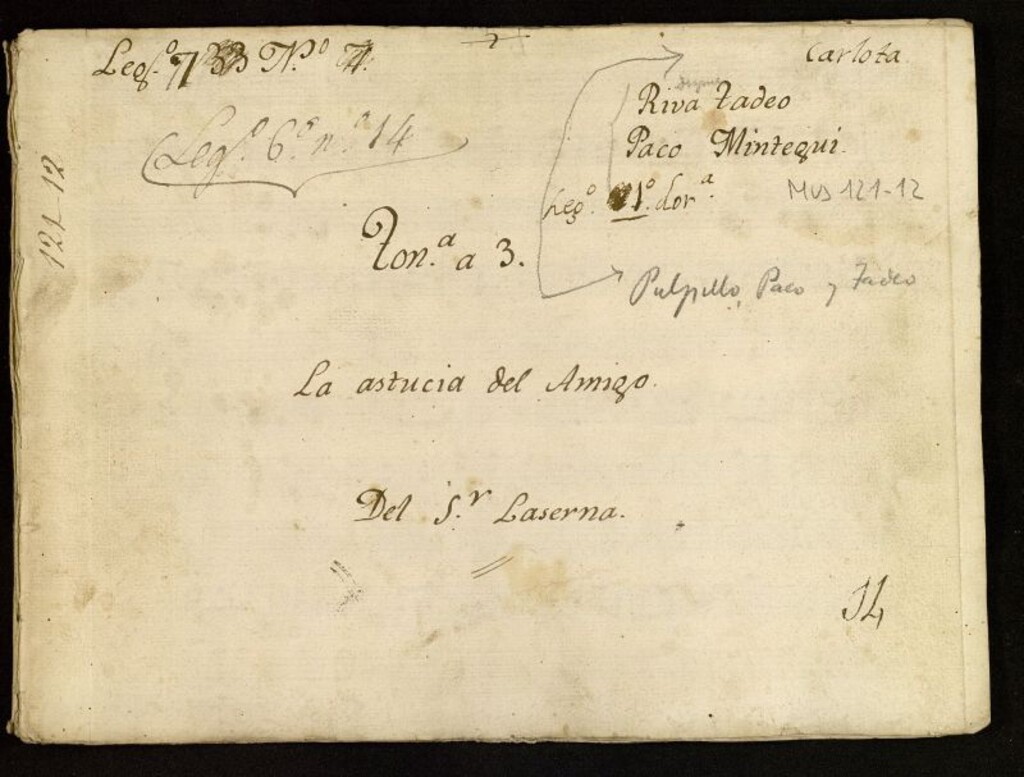 Leg.º 7 Nº 7.
Carlota.
Riva Tadeo
Paco Mintegui.
Leg.º 6.º n.º 14
MUS 121-12
121-12
Leg.º 1.º dor.ª
Ton.ª a 3.
Pulpillo, Paco y Tadeo
La astucia del Amigo.
Del S.r Laserna.
14